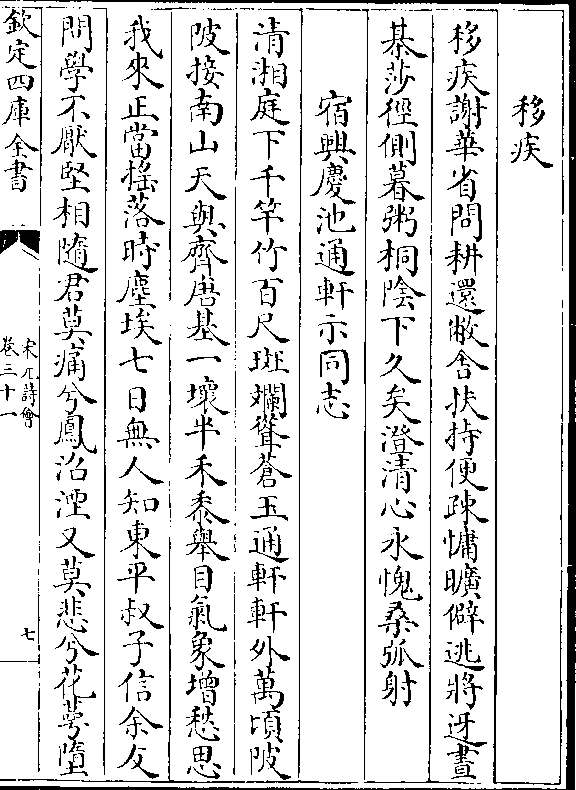 移疾
移疾謝華省問耕還敝舍扶持便疎慵曠僻逃將迓晝
棊莎徑側暮粥桐陰下久矣澄清心永愧桑弧射
宿興慶池通軒示同志
清湘庭下千竿竹百尺斑斕聳蒼玉通軒軒外萬頃陂
陂接南山天與齊唐基一壞半禾黍舉目氣象增愁思
我來正當搖落時塵埃七日無人知東平叔子信余友
問學不厭堅相隨君莫痛兮鳳沼湮又莫悲兮花萼墮
欽定四庫全書
宋元詩會
卷三十一
七